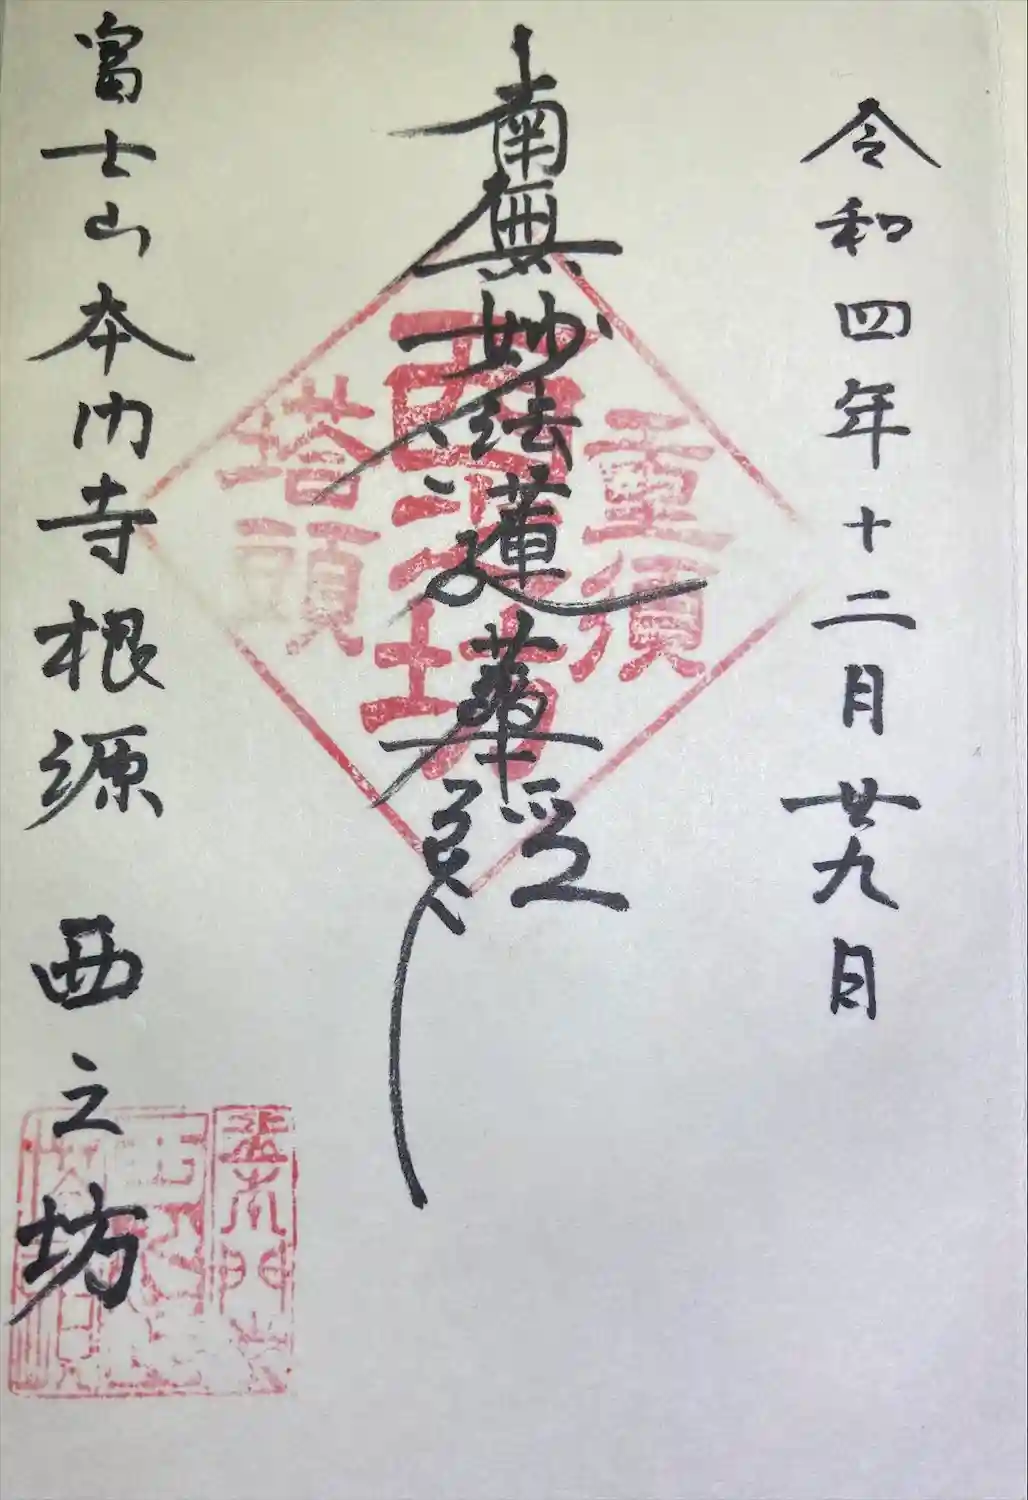 令和四年十二月廿九日
南無妙法蓮華経
重須
西之坊
塔頭
富士山本門寺根源 西之坊